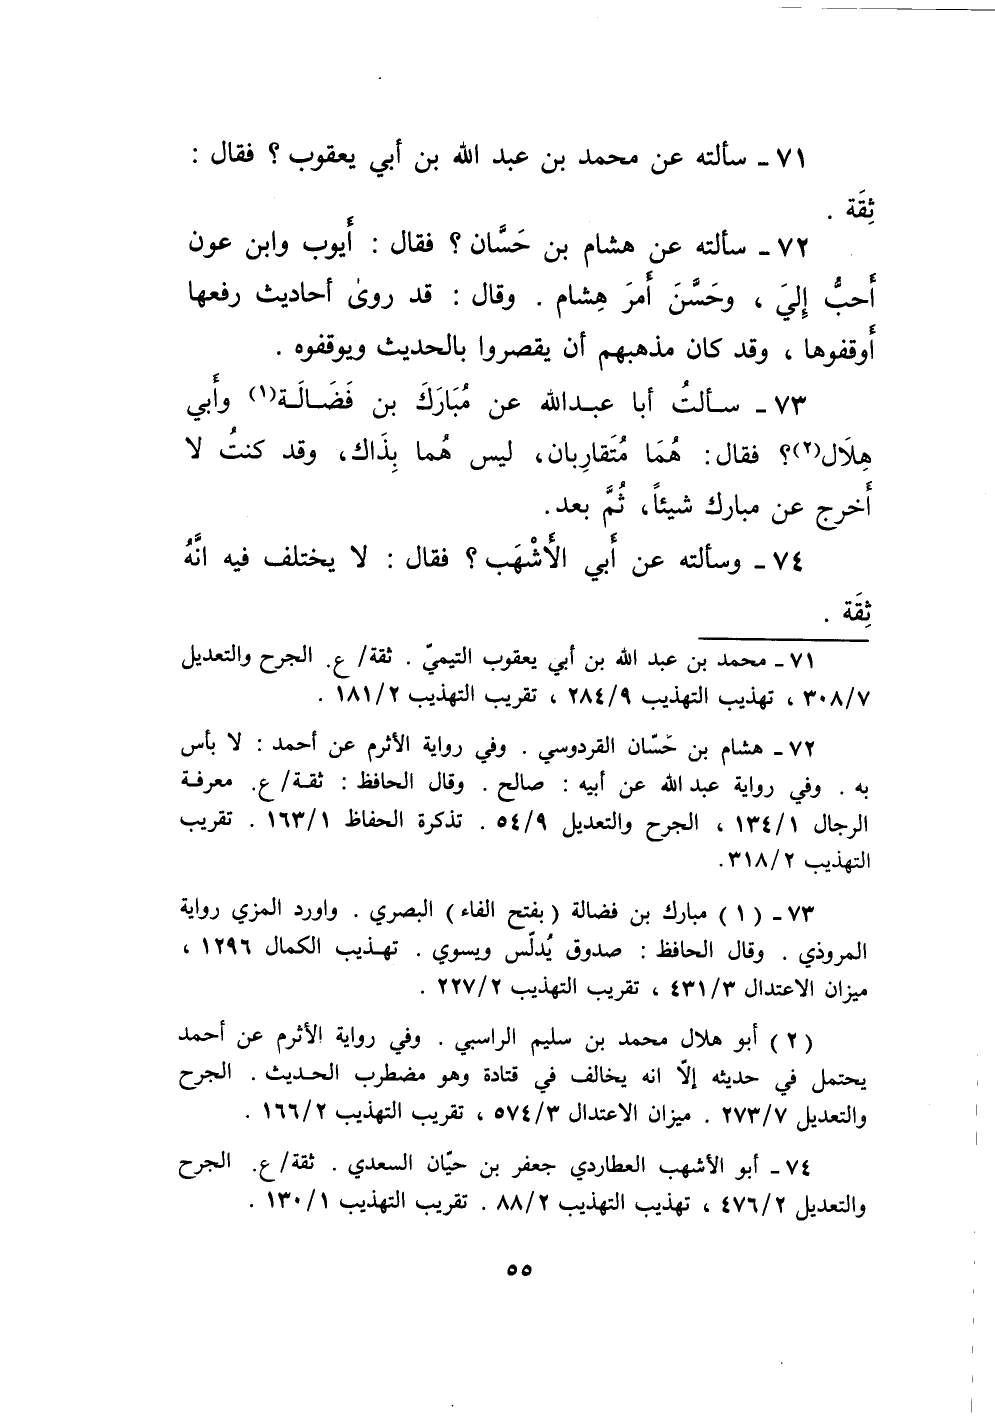 ٧١ ـ سألته عن محمد بن عبد الله بن أبي يعقوب ؟ فقال :
ثِقَة .
٧٢ ـ سألته عن هشام بن حَسَّان ؟ فقال : أَيوب وابن عون
أَحبُّ إِليَ ، وحَسَّنَ أَمرَ هِشام . وقال : قد روىٰ أحاديث رفعها
أَوقفوها ، وقد كان مذهبهم أن يقصروا بالحديث ويوقفوه .
٧٣ ـ سـألتُ أبا عبـدالله عن مُبَارَكَ بن فَضَـالَـة(١) وأَبي
هِلَال(٢)؟ فقال: هُمَا مُتَقارِبان، ليس هُما بِذَاك، وقد كنتُ لا
أَخرج عن مبارك شيئاً، ثُمَّ بعد.
٧٤ ـ وسألته عن أَبي الأَشْهَب ؟ فقال : لا يختلف فيه انَّهُ
ثِقَة .
٧١ ـ محمد بن عبد الله بن أبي يعقوب التيميّ . ثقة/ ع. الجرح والتعديل
٣٠٨/٧ ، تهذيب التهذيب ٢٨٤/٩ ، تقريب التهذيب ١٨١/٢ .
٧٢ ـ هشام بن حَسّان القردوسي . وفي رواية الأثرم عن أحمد : لا بأس
به . وفي رواية عبد الله عن أبيه : صالح . وقال الحافظ : ثقـة/ ع. معرفـة
الرجال ١٣٤/١ ، الجرح والتعديل ٥٤/٩ . تذكرة الحفاظ ١٦٣/١ . تقريب
التهذيب ٣١٨/٢.
٧٣ ـ (١) مبارك بن فضالة (بفتح الفاء) البصري . واورد المزي رواية
المروذي . وقال الحافظ : صدوق يُدلّس ويسوي . تهـذيب الكمال ١٢٩٦ ،
ميزان الاعتدال ٤٣١/٣ ، تقريب التهذيب ٢٢٧/٢ .
(٢) أبو هلال محمد بن سليم الراسبي . وفي رواية الأثرم عن أحمد
يحتمل في حديثه إلّا انه يخالف في قتادة وهو مضطرب الحـديث . الجرح
والتعديل ٢٧٣/٧ . ميزان الاعتدال ٥٧٤/٣ ، تقريب التهذيب ١٦٦/٢ .
٧٤ ـ أبو الأشهب العطاردي جعفر بن حيّان السعدي . ثقة/ ع. الجرح
والتعديل ٤٧٦/٢ ، تهذيب التهذيب ٨٨/٢ . تقريب التهذيب ١٣٠/١ .
٥٥